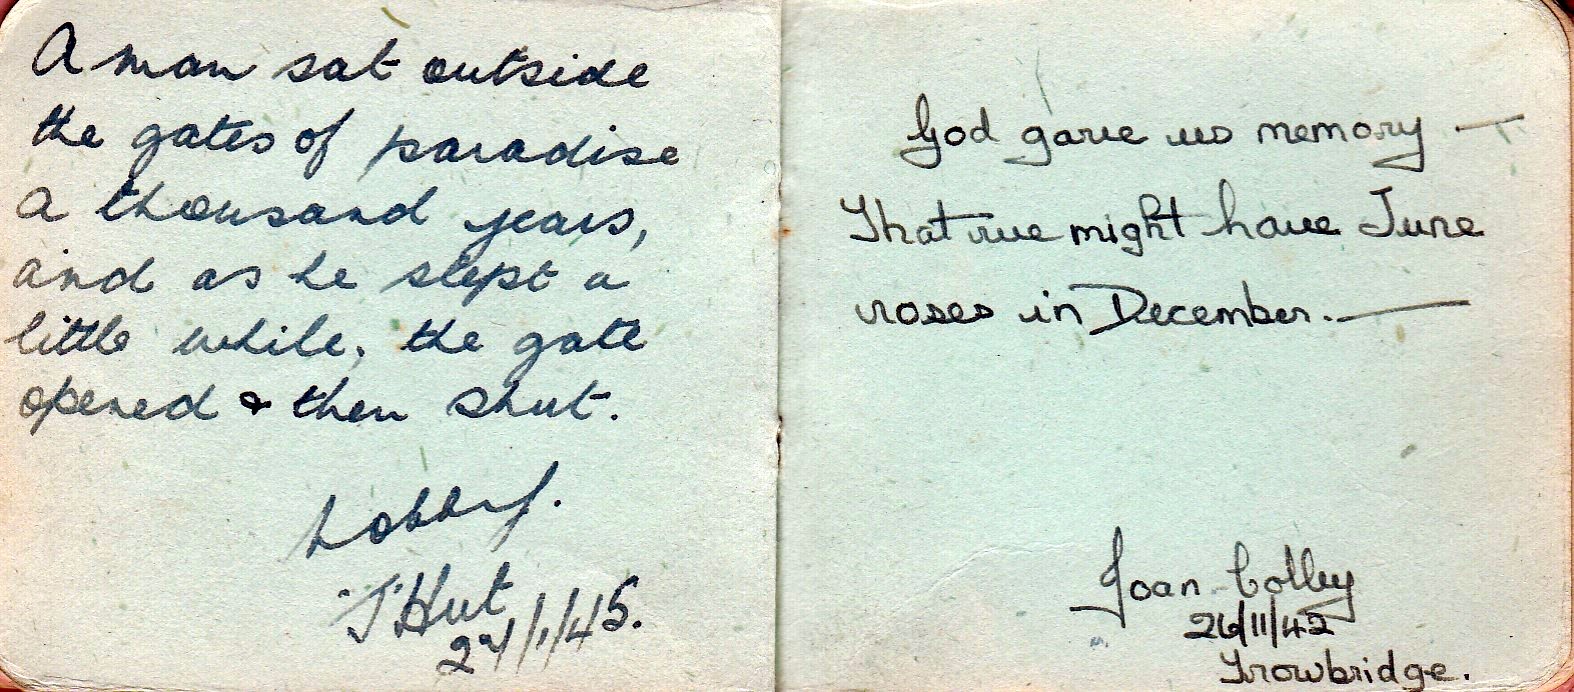 A man sat outside
the gates of paradise
a thousand years,
and as he slept a
little while, the gate
opened & then shut.
'J' Hut
27/1/45.
God gave us memory —
That we might have June
roses in December. —
Joan Colley
26/11/42
Trowbridge.